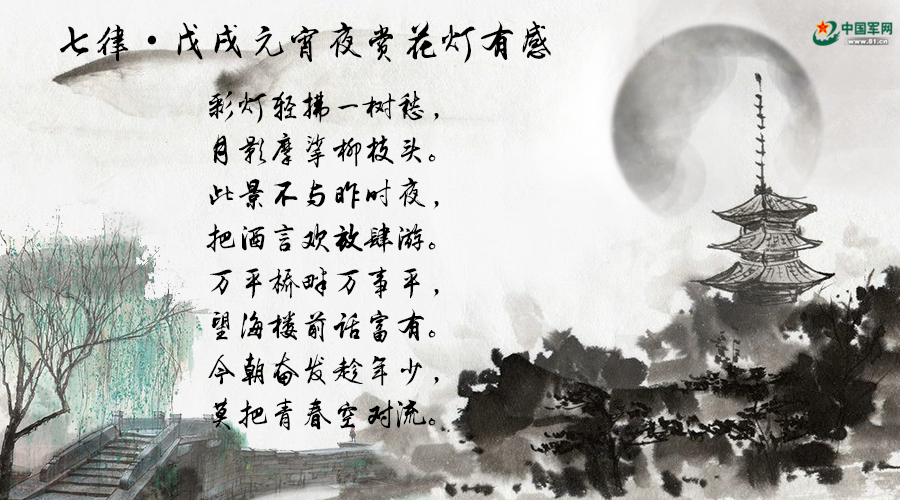 七律·戊戌元宵夜赏花灯有感
中国军网
www.81.cn
彩灯轻拂一树愁，
月影摩挲柳枝头。
此景不与昨时夜，
把酒言欢放肆游。
万平桥畔万事平，
望海楼前话富有。
今朝奋发趁年少，
莫把青春空对流。